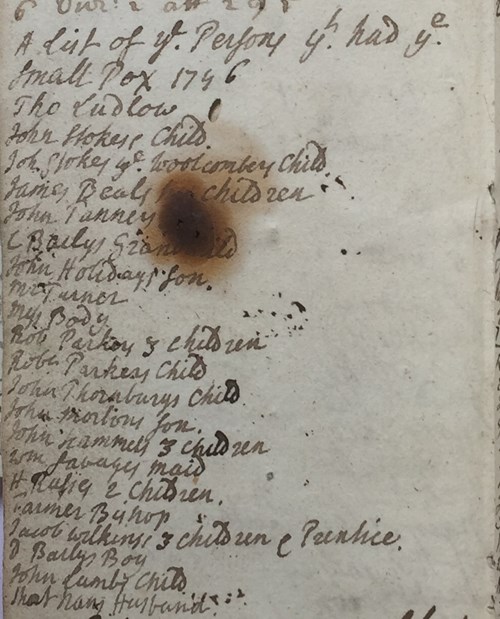 A List of ye. Persons yt. had ye.
Small Pox 1746
Tho Ludlow
John Stokess Child.
Joh Stokes ye. Woolcombers Child.
James Beals children
John Tanners
C Bailys Grand
John Holidays Son.
Mr Turner
Mrs Body
Rob Parkers 3 children
Robt Parkers Child
John Thornburys Child
John Mortons Son.
John Hammels 3 children
Wm Savages maid
H Rusies 2 Children.
Farmer Bishop
Jacob Wilkins, 3 children & Prentice.
D Bailys Boy
John Lambs Child
Husband